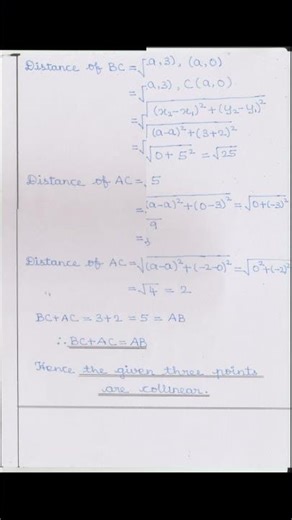 Distance of BC = √a,3), (a,0)
= √a,3), C(a,0)
= √√(x₂-x₁)²+(y₂-y₁)²
= √√(a-a)²+(3+2)²
= √√0+5² = √25
Distance of AC = 5
= √(a-a)²+(0-3)² = √0+(-3)
9
=
Distance of AC = √(a-a)²+(-2-0)² = √0²+(-2)²
= √4 = 2
BC+AC = 3+2 = 5 = AB
∴ BC+AC = AB
Hence the given three points
are collinear.